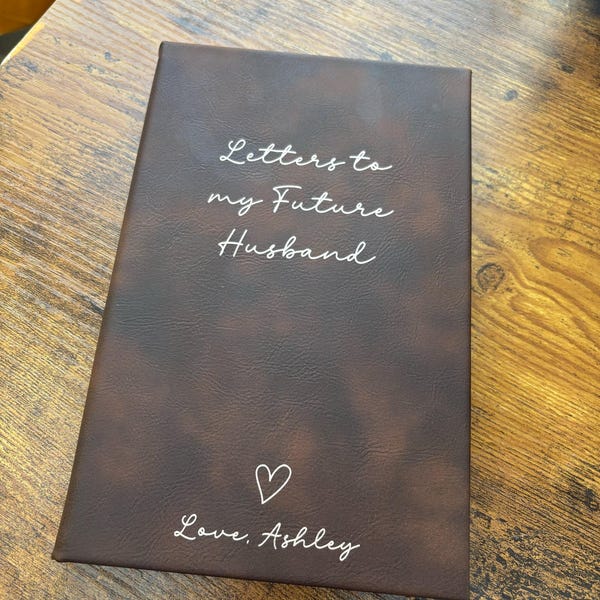 Letters to
my Future
Husband
Love, Ashley